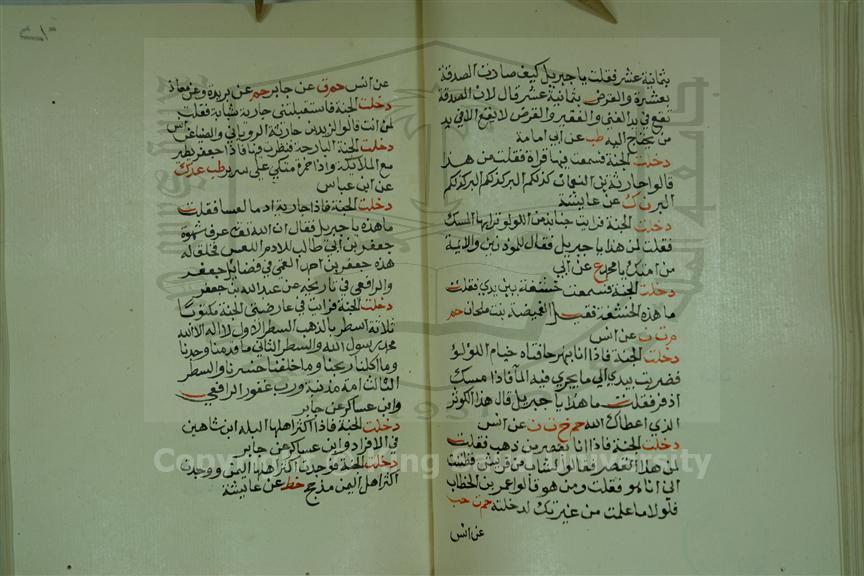 بثمانية عشر فقلت يا جبريل كيف صارت الصدقة
بعشرة والقرض بثمانية عشر قال لان الصدقة
تقع في يد الغني والفقير والقرض لا يقع الا في يد
من يحتاج اليه طب عن ابي امامة
دخلت الجنة فسمعت فيها قراة فقلت من هذا
قالوا حارثة بن النعمان كذلكم البر كذلكم البر كذلكم
البر ن ك عن عايشة
دخلت الجنة فرايت جنابذ من اللولو ترابها المسك
فقلت لمن هذا يا جبريل فقال للموذنين والايمة
من امتك يا محمد ع عن ابي
دخلت الجنة فسمعت خشفة بين يدي فقلت
ما هذه الخشفة فقيل الغميصة بنت ملحان حم
م ت ن عن انس
دخلت الجنة فاذا انا بنهر حافتاه خيام اللولو
فضربت بيدي الى ما يجري فيه الما فاذا مسك
اذفر فقلت ما هذا يا جبريل قال هذا الكوثر
الذي اعطاك الله حم خ ت ن عن انس
دخلت الجنة فاذا انا بقصر من ذهب فقلت
لمن هذا القصر فقالوا لشاب من قريش فظننت
اني انا هو فقلت ومن هو قالوا عمر بن الخطاب
فلولا ما علمت من غيرتك لدخلته حم ت حب
عن انس
عن انس حم ق عن جابر حم عن بريدة وعن معاذ
دخلت الجنة فاستقبلتني جارية شابة فقلت
لمن انت قالوا لزيد بن حارثة الروياني والضيا عن
دخلت الجنة البارحة فنظرت فيها فاذا جعفر يطير
مع الملايكة واذا حمزة متكي على سرير طب عد ك
عن ابن عباس
دخلت الجنة فاذا جارية ادما لعسا فقلت
ما هذه يا جبريل فقال ان الله تعا عرف شهوة
جعفر بن ابي طالب للادم اللعس فخلق له
هذه جعفر بن احمد القمي في فضايل جعفر
والرافعي في تاريخه عن عبد الله بن جعفر
دخلت الجنة فرايت في عارضتي الجنة مكتوبا
ثلاثة اسطر بالذهب السطر الاول لا اله الا الله
محمد رسول الله والسطر الثاني ما قدمنا وجدنا
وما اكلنا ربحنا وما خلفنا خسرنا والسطر
الثالث امة مذنبة ورب غفور الرافعي
وابن عساكر عن جابر
دخلت الجنة فاذا اكثر اهلها البله ابن شاهين
في الافراد وابن عساكر عن جابر
دخلت الجنة فوجدت اكثر اهلها اليمن ووجدت
اكثر اهل اليمن مذحج خط عن عايشة